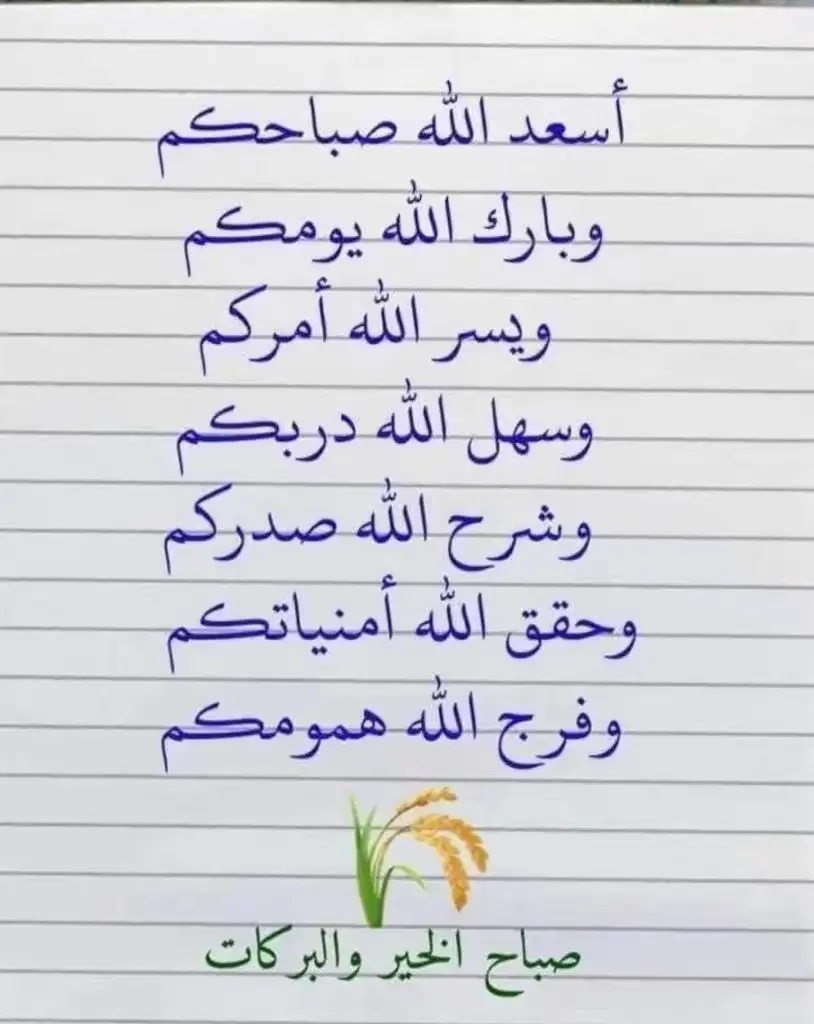 أسعد الله صباحكم
وبارك الله يومكم
ويسر الله أمركم
وسهل الله دربكم
وشرح الله صدركم
وحقق الله أمنياتكم
وفرج الله همومكم
صباح الخير والبركات